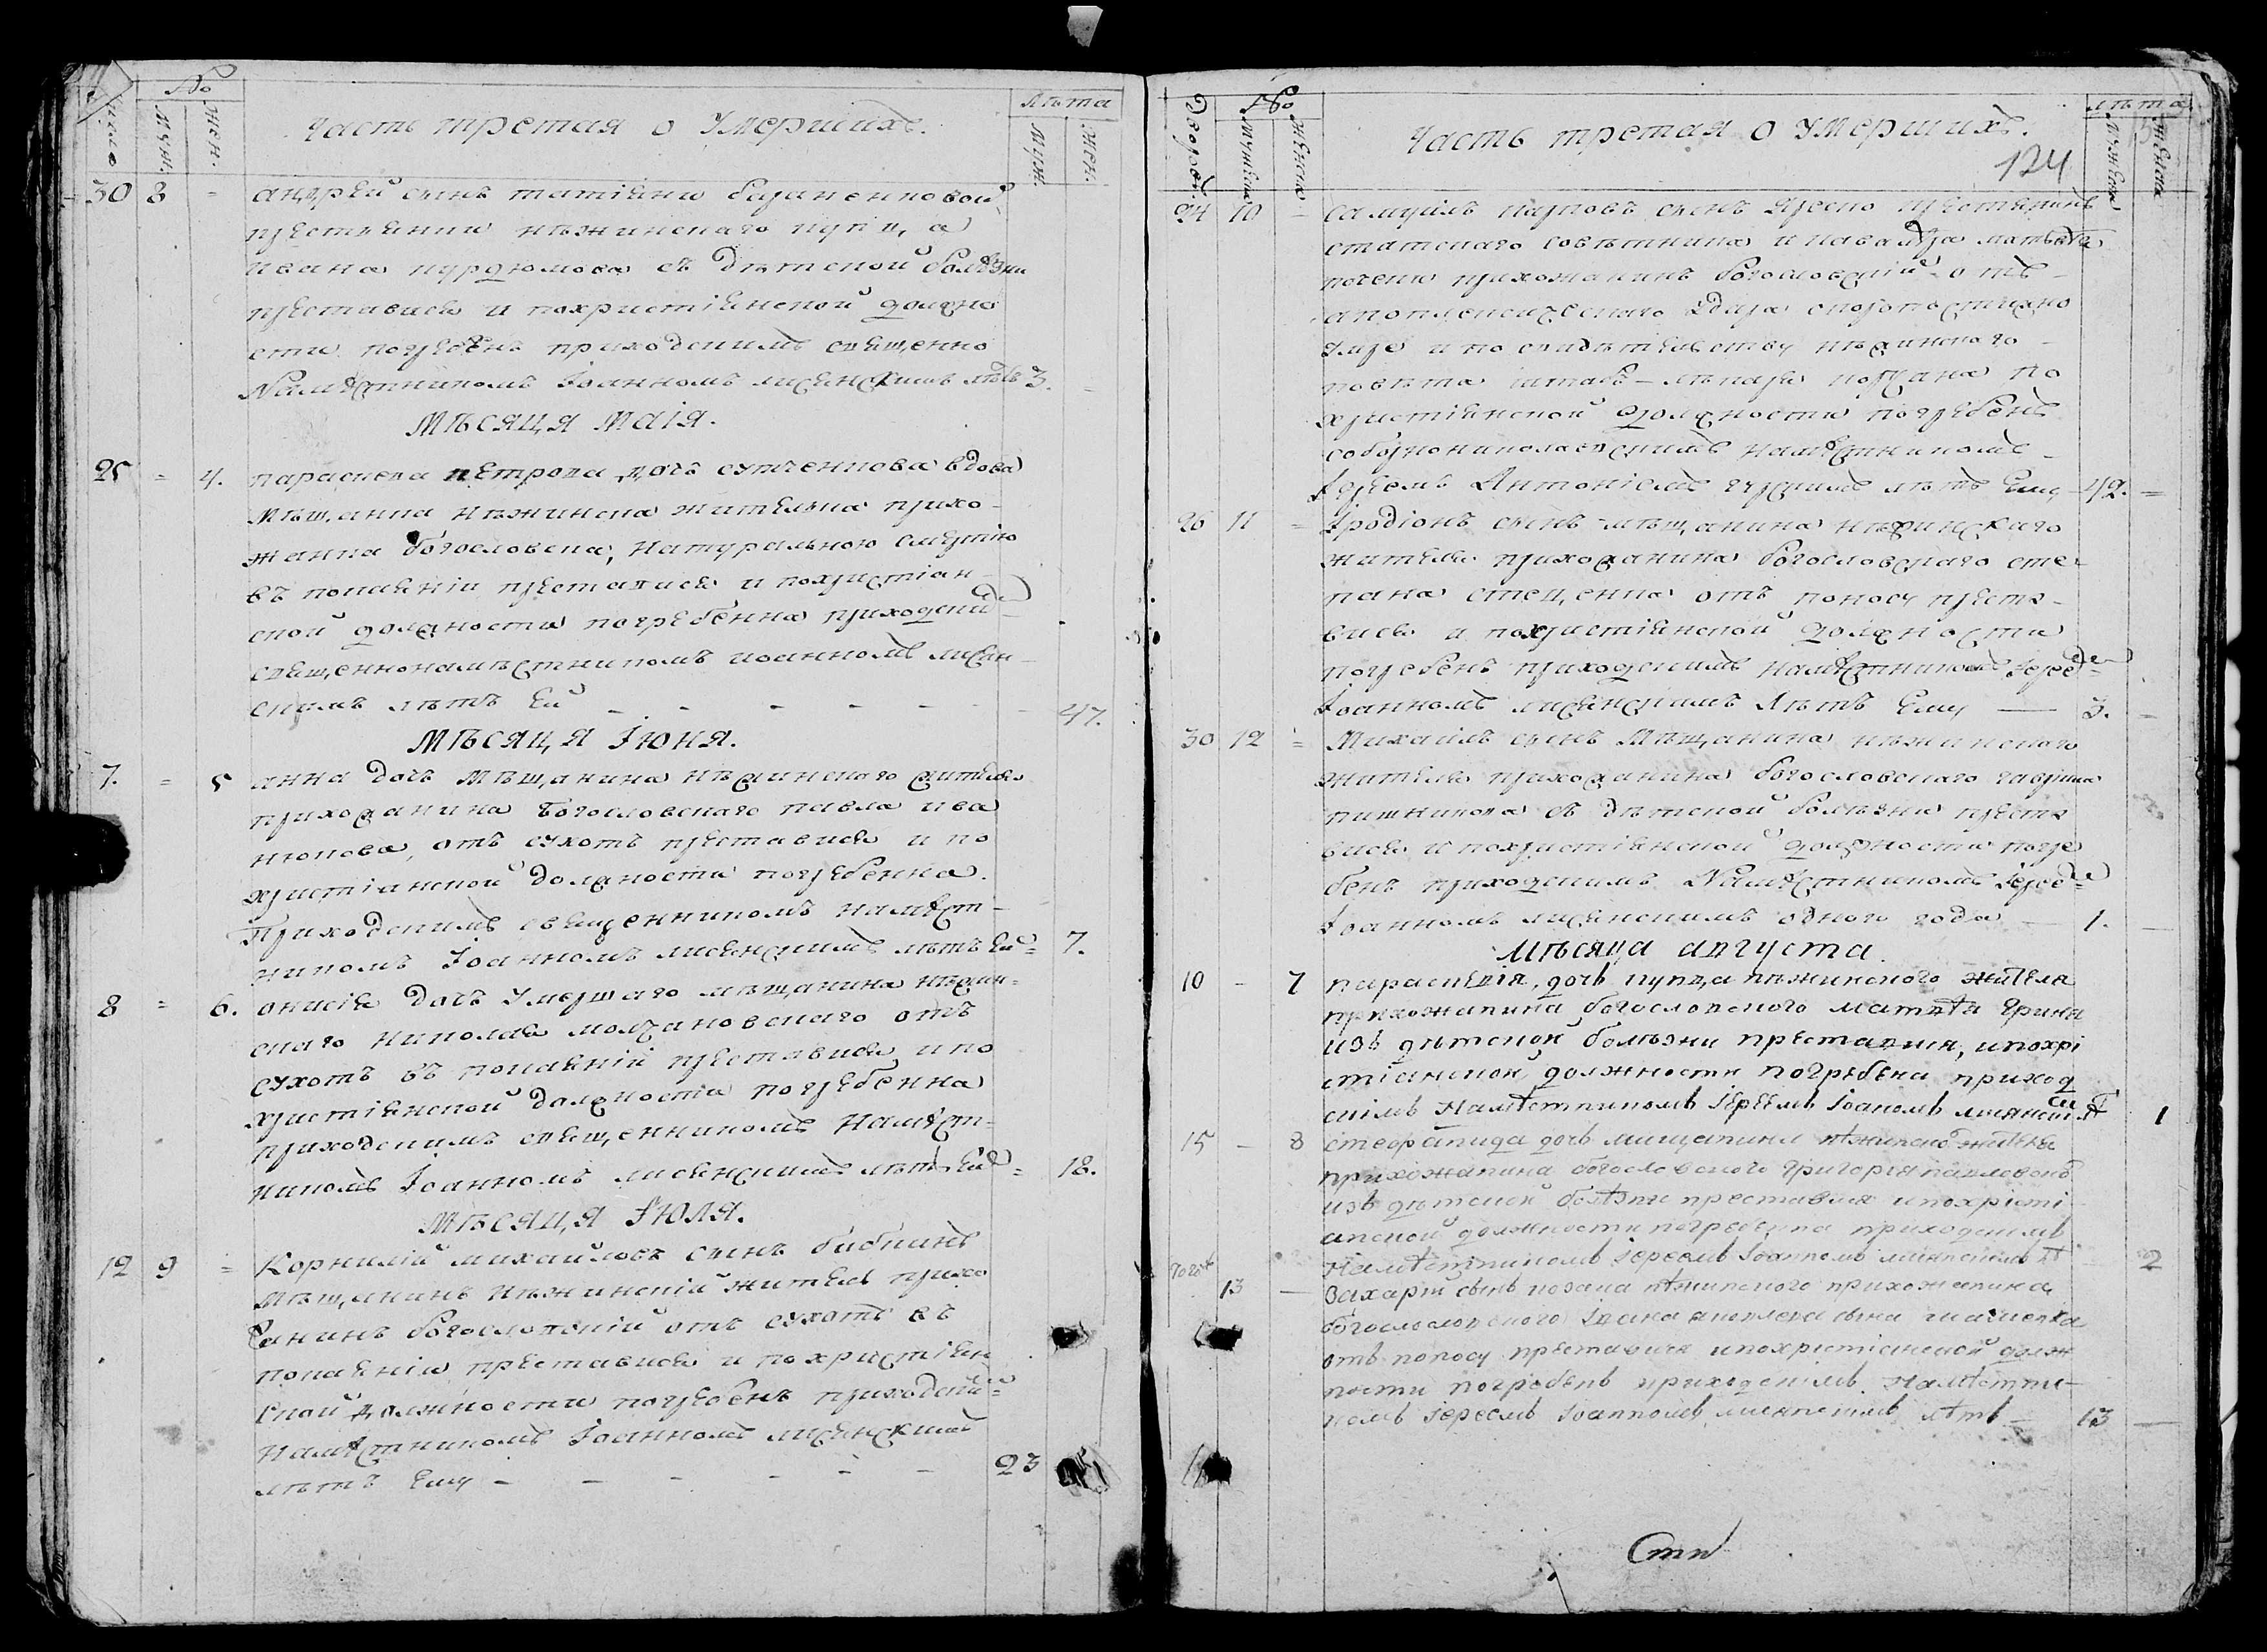 Число
№
муж.
жен.
Часть третая о Умершихъ.
Лѣта
муж.
жен.
30 8 = андрей сынъ татіяни
крестянини нѣжинского купца
ивана курдюмова съ дѣтской болѣзни
преставися и похристіянской должно
сти погребенъ приходскимъ священно
Намѣстникомъ Іоанномъ лѣтъ 3. =
Мѣсяца маія.
25 = 4. параскева петрова дочъ вдова
мѣщанка нѣжинска жителка прихо-
жанка богословска, натуралною смертію
въ покаяніи преставися и похристіан
ской должности погребенна приходски
священнонамѣстникомъ иоанномъ лисян
скимъ лѣтъ Ей - - - - - 47.
Мѣсяца Іюня.
7. = 5 анна дочъ мѣщанина нѣжинского жителя
прихожанина богословского павла ива
нюкова, отъ сухотъ преставися и по
христіанской должности погребенна.
Приходскимъ священникомъ намѣст-
никомъ Іоанномъ лисянскимъ лѣтъ Ей = 7.
8 = 6. онисія дочъ Умершаго мѣщанина нѣжин-
скаго николая молчановскаго отъ
сухотъ въ покаяніи преставися и по
христіянской должности погребенна
приходскимъ священникомъ Намѣст-
никомъ Іоанномъ лисянскимъ лѣтъ Ей = 18.
Мѣсяца Іюля.
12 9 = Корнилій михайловъ сынъ бибпинъ
мѣщанинъ нѣжинскій житель прихо
жанинъ богословскій отъ сухотъ въ
покаяніи преставися и похристіян
ской должности погребенъ приходски
намѣстникомъ Іоанномъ лисянскимъ
лѣтъ Ему - - - - - - 23
№
мужеска
женска
Часть третая о умершихъ.
124
лѣта
мужеска
женска
24 10 - самуилъ карповъ сынъ крестянинъ
статскаго совѣтника и кавалера матвѣя
прихожанинъ богословскій отъ
апоплексическаго Удара скоропостижно
Умре и по свидѣтелству нѣжинского
повѣта штабъ-лѣкаря по
христіянской должности погребенъ
соборнониколаевскимъ намѣстникомъ
Іереемъ Антоніемъ лѣтъ Ему - 42. =
26 11 = Іродіонъ сынъ мѣщанина нѣжинскаго
жителя прихожанина богословскаго сте
пана стеценка отъ поносу преста-
вися и похристіянской должности
погребенъ приходскимъ намѣстникомъ Іерее
Іоанномъ лисянскимъ Лѣтъ Ему — 3. -
30 12 = Михаилъ сынъ Мѣщанина нѣжинского
жителя прихожанина богословскаго гавріила
съ дѣтской болѣзни преста
вися и похристіянской должности погре
бенъ приходскимъ Намѣстникомъ Іерее
Іоанномъ лисянскимъ одного года — 1. -
Мѣсяца августа.
10 - 7 параскевія, дочь купца нѣжинского жителя
прихожанина богословского матвѣя
изъ дѣтской болѣзни преставися, ипохрі
стіанской должности погребена приход
скимъ Намѣстникомъ Іереемъ Іоаномъ лисянски 1
15 - 8 стефанида дочь мищанина нѣжинского жителя
прихожанина богословского григорія
изъ дѣтской болѣзни преставися ипохрісті
анской должности погребенна приходскимъ
Намѣстникомъ Іереемъ Іоанномъ лисянскимъ - 2
тогожъ 13 — Захарій сынъ козака нѣжинского прихожанина
Івана сына
отъ поносу преставися ипохристіанской долж
ности погребенъ приходскимъ Намѣстни-
комъ Іереемъ Іоанномъ лисянскимъ лѣтъ — 13 —